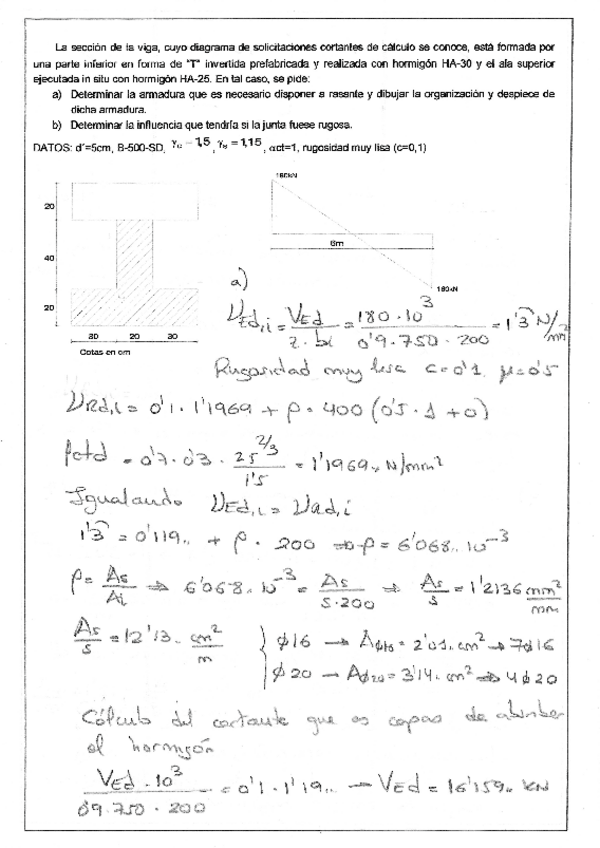 La sección de la viga, cuyo diagrama de solicitaciones cortantes de cálculo se conoce, está formada por
una parte inferior en forma de "T" invertida prefabricada y realizada con hormigón HA-30 y el ala superior
ejecutada in situ con hormigón HA-25. En tal caso, se pide:
a) Determinar la armadura que es necesario disponer a rasante y dibujar la organización y despiece de
dicha armadura.
b) Determinar la influencia que tendría si la junta fuese rugosa.
DATOS: d'=5cm, B-500-SD, γc = 1,5, γs = 1,15, αct=1, rugosidad muy lisa (c=0,1)
180kN
20
40
20
6m
180kN
30 20 30
Cotas en cm
a)
νEd,i = VEd / z · bi = 180 · 10³ / 0'9 · 750 · 200 = 1'3̂ N/mm²
Rugosidad muy lisa c=0'1 μ=0'5
νRd,i = 0'1 · 1'1969 + ρ · 400 (0'5 · 1 + 0)
fctd = 0'7 · 0'3 · 25^2/3 / 1'5 = 1'1969.. N/mm²
Igualando νEd,i = νRd,i
1'3̂ = 0'119.. + ρ · 200 ⇒ ρ = 6'068.. 10⁻³
ρ = As / Ai ⇒ 6'068.. 10⁻³ = As / s·200 ⇒ As / s = 1'2136 mm² / mm
As / s = 12'13.. cm² / m { ϕ16 → Aϕ16 = 2'01.. cm² → 7ϕ16
ϕ20 → Aϕ20 = 3'14.. cm² ⇒ 4ϕ20
Cálculo del cortante que es capaz de absorber
el hormigón
VEd · 10³ / 0'9 · 750 · 200 = 0'1 · 1'19.. → VEd = 16'159.. kN